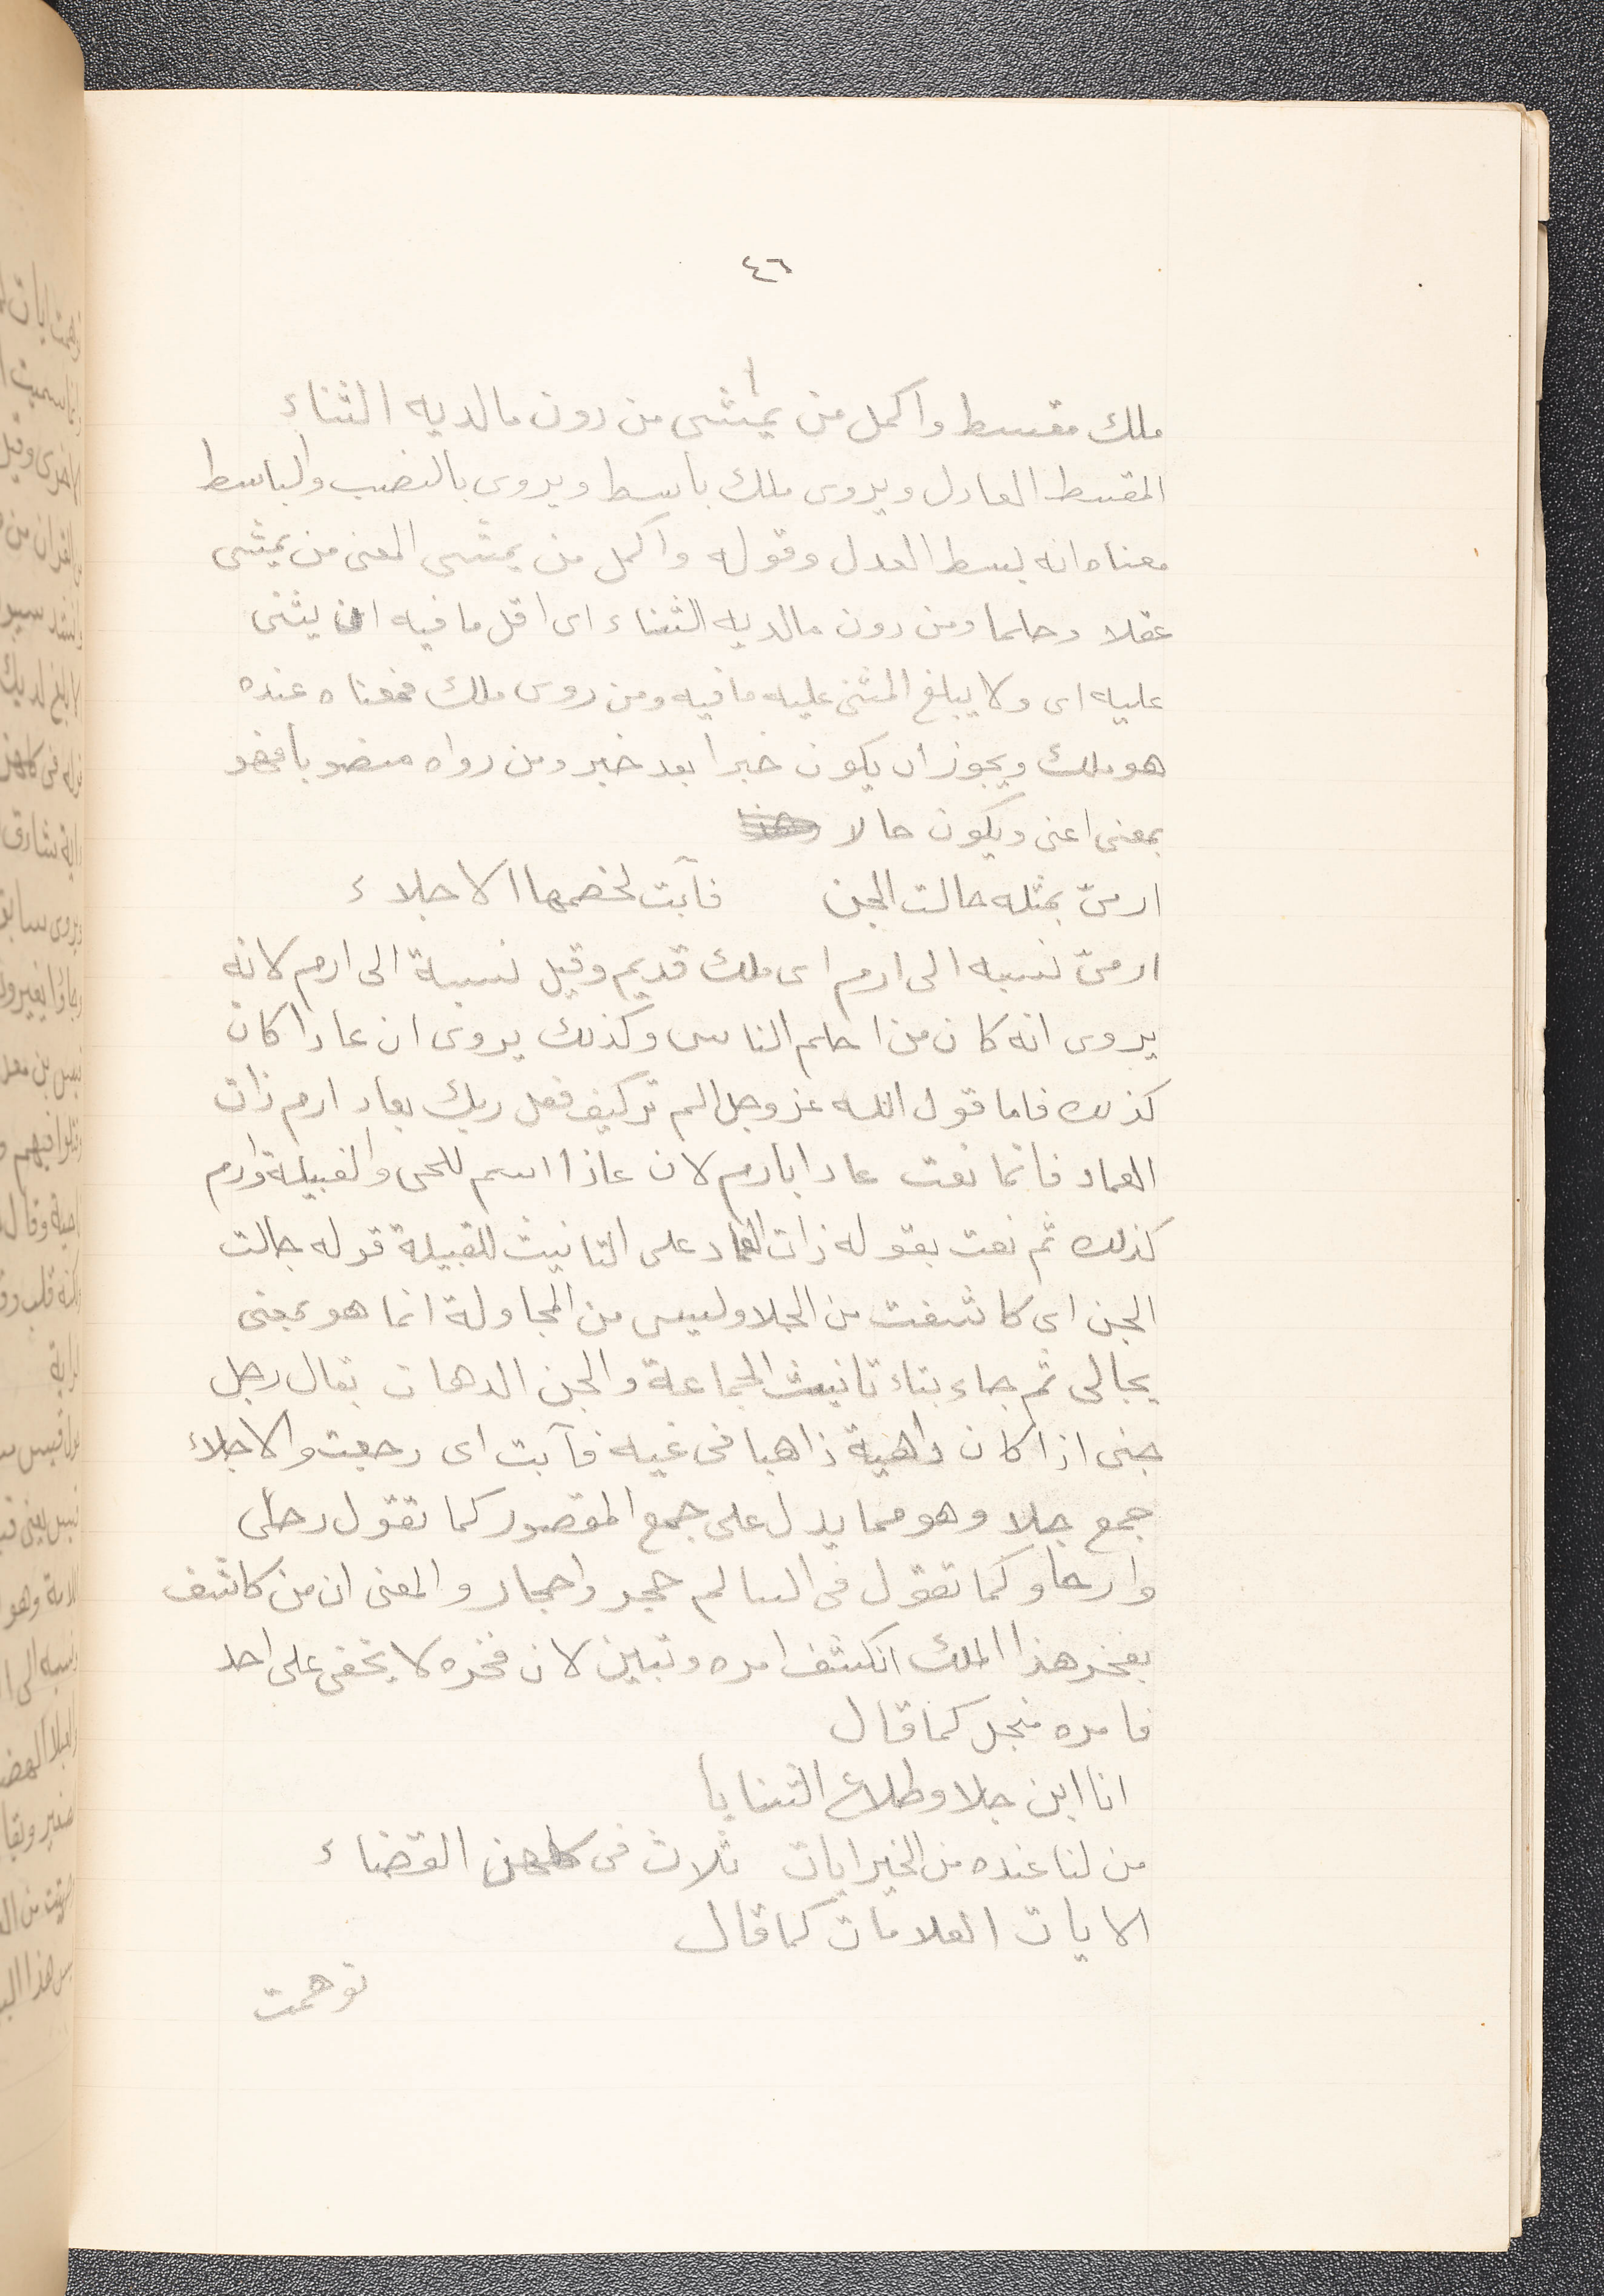 ٤٦
ملك مقسط واكمل من يمشى من دون مالديه الثناء
المقسط العادل ويروى ملك باسط ويروى بالنصب والباسط
معناه انه بسط العدل وقوله واكمل من يمشى المعنى من يمشى
عقلا وحلما ومن دون مالديه الثناء اى اقل ما فيه ان يثنى
عليه اى ولا يبلغ المثنى عليه ما فيه ومن روى ملك فمعناه عنده
هو ملك ويجوز ان يكون خبرا بعد خبر ومن رواه منصوبا فهو
بمعنى اعنى ويكون حالا
ارمىّ بمثله جالت الجن فآبت لخصمها الاجلاء
ارمىّ نسبه الى ارم اى ملك قديم وقيل نسبة الى ارم لانه
يروى انه كان من احلم الناس وكذلك يروى ان عادا كان
كذلك فاما قول الله عز وجل الم تر كيف فعل ربك بعاد ارم ذات
العماد فانما نعت عادا بارم لان عادا اسم للحى والقبيلة وارم
كذلك ثم نعت بقوله ذات العماد على التانيث للقبيلة قوله جالت
الجن اى كاشفت من الجلا وليس من المجاولة انما هو بمعنى
يجالى ثم جاء بتاء تانيث الجماعة والجن الدهات يقال رجل
جنى اذا كان داهية ذاهبا فى غيه فآبت اى رجعت والاجلاء
جمع جلا وهو مما يدل على جمع المقصور كما تقول رحًى
وارحا وكما تقول فى السالم حجر واحجار والمعنى ان من كاشف
بفخر هذا الملك انكشف امره وتبين لان فخره لا يخفى على احد
فامره منجل كما قال
انا ابن جلا وطلاع الثنايا
من لنا عنده من الخير ايات ثلاث فى كلهن القضاء
الايات العلامات كما قال
توهمت